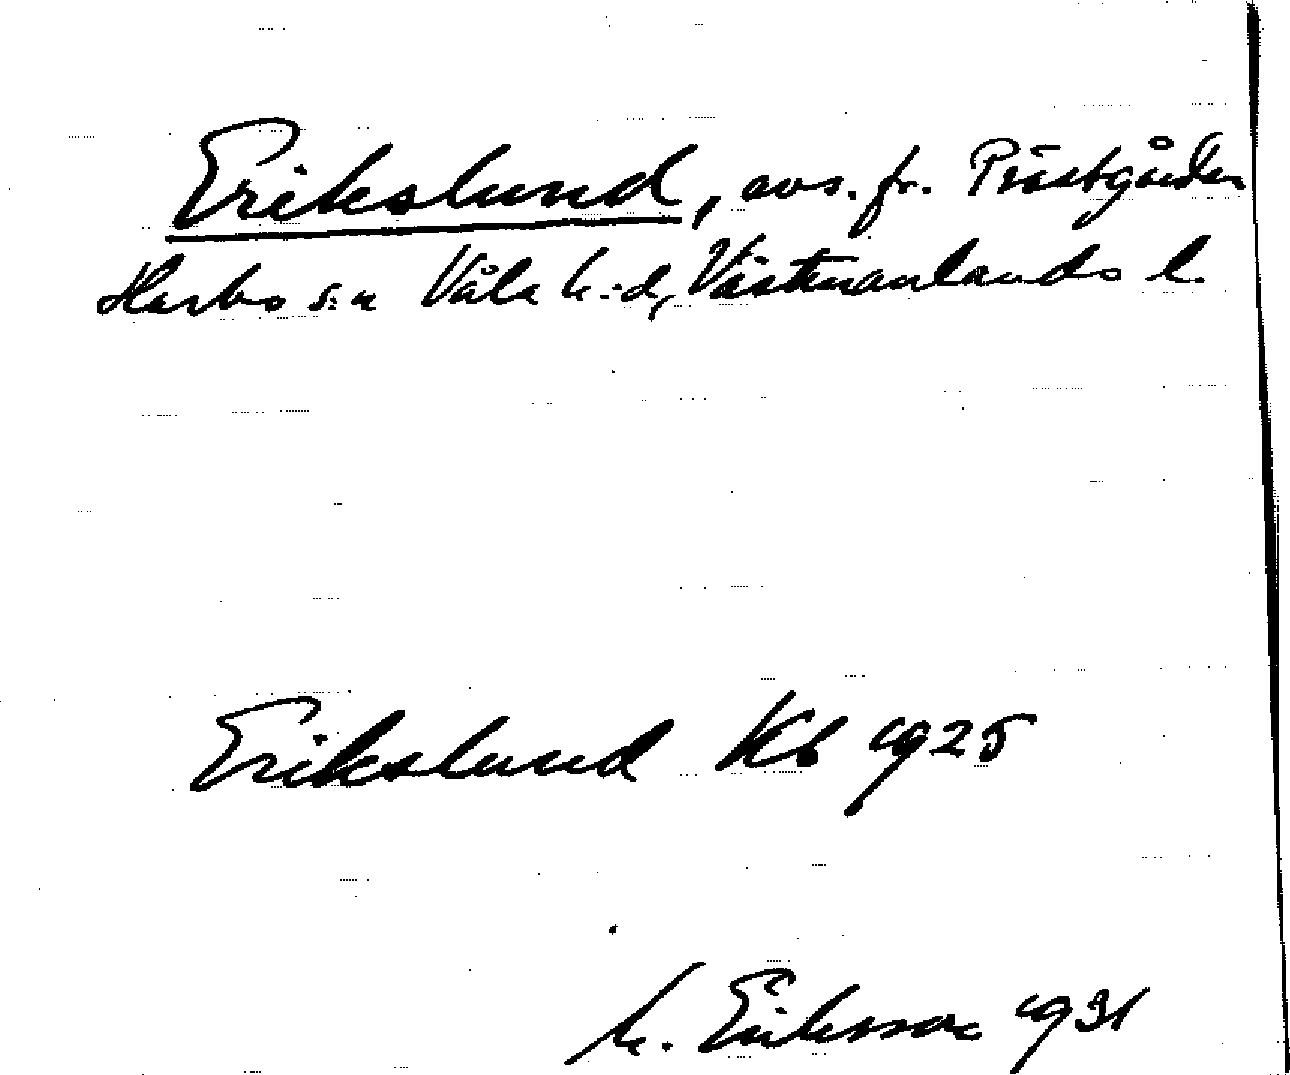 Erikslund, avs. fr. Prästgården
Harbo s:n Våla h:d, Västmanlands l.
Erikslund Kb 1925
M. Eriksson 1931